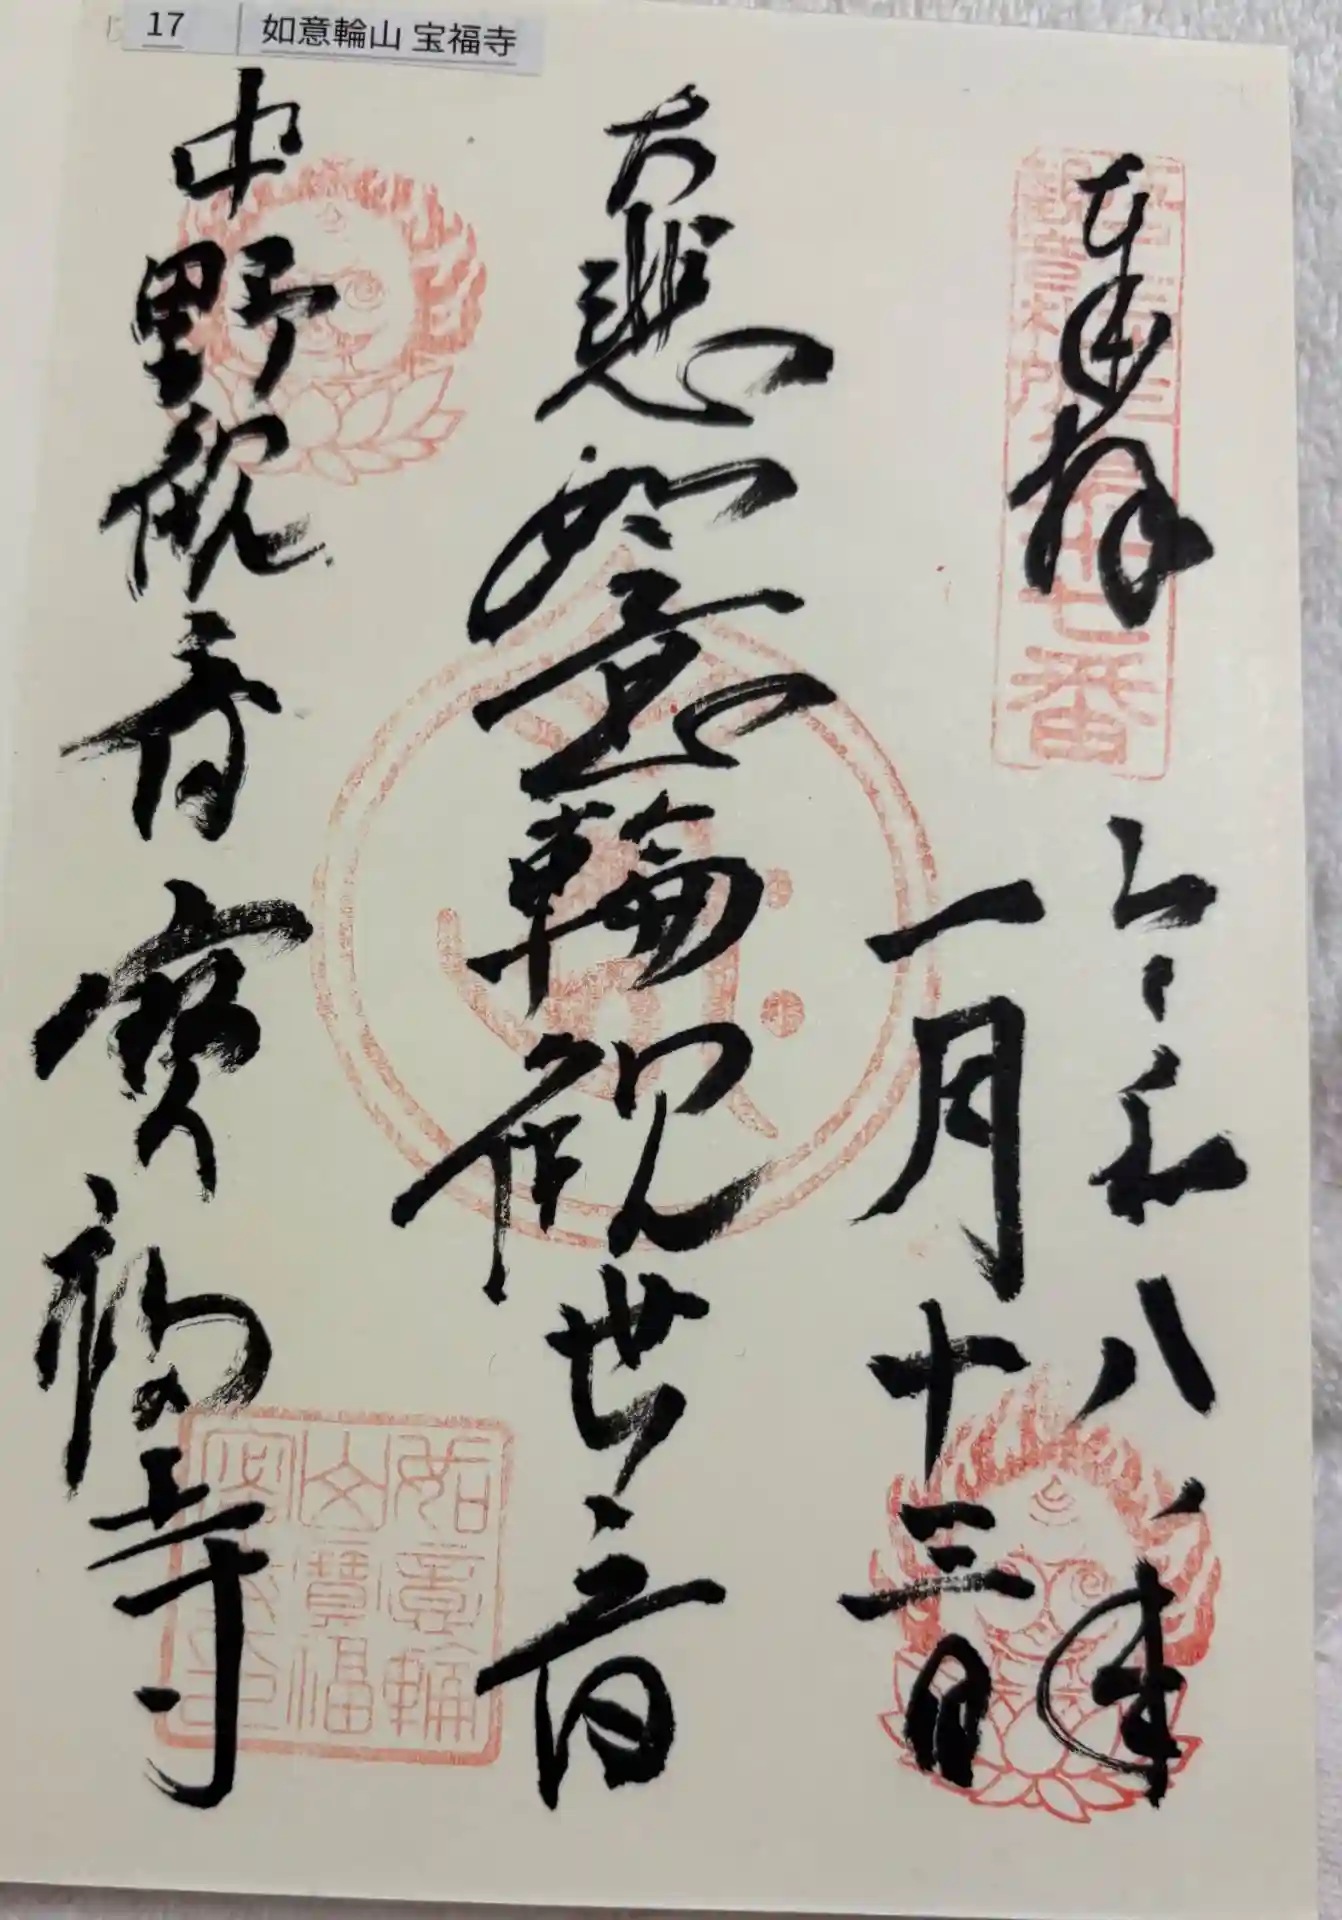 17 如意輪山 宝福寺
奉拝
令和八年
一月十三日
大悲如意輪観世音
中野観音
寳福寺
第十七番
如意輪
山寶福